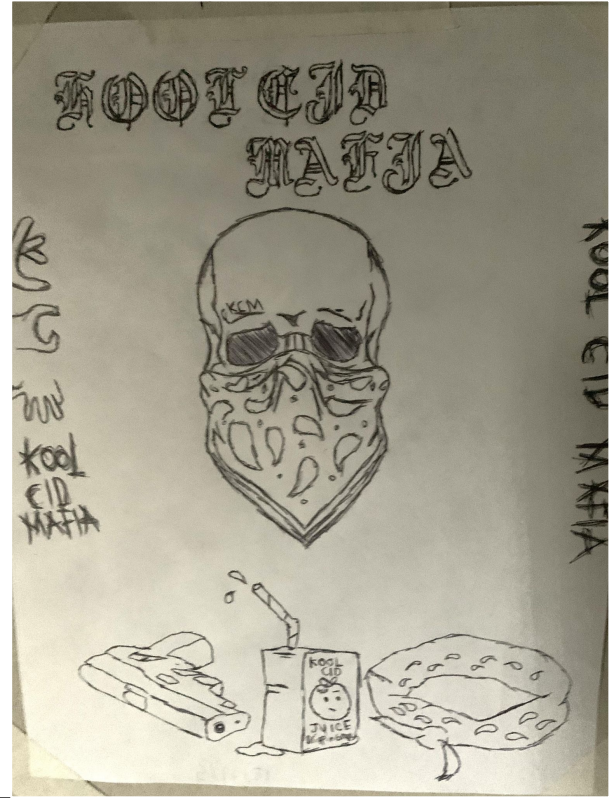 KOOL CID
MAFIA
KCM
KOOL
CID
MAFIA
KOOL CID MAFIA
KOOL
CID
JUICE